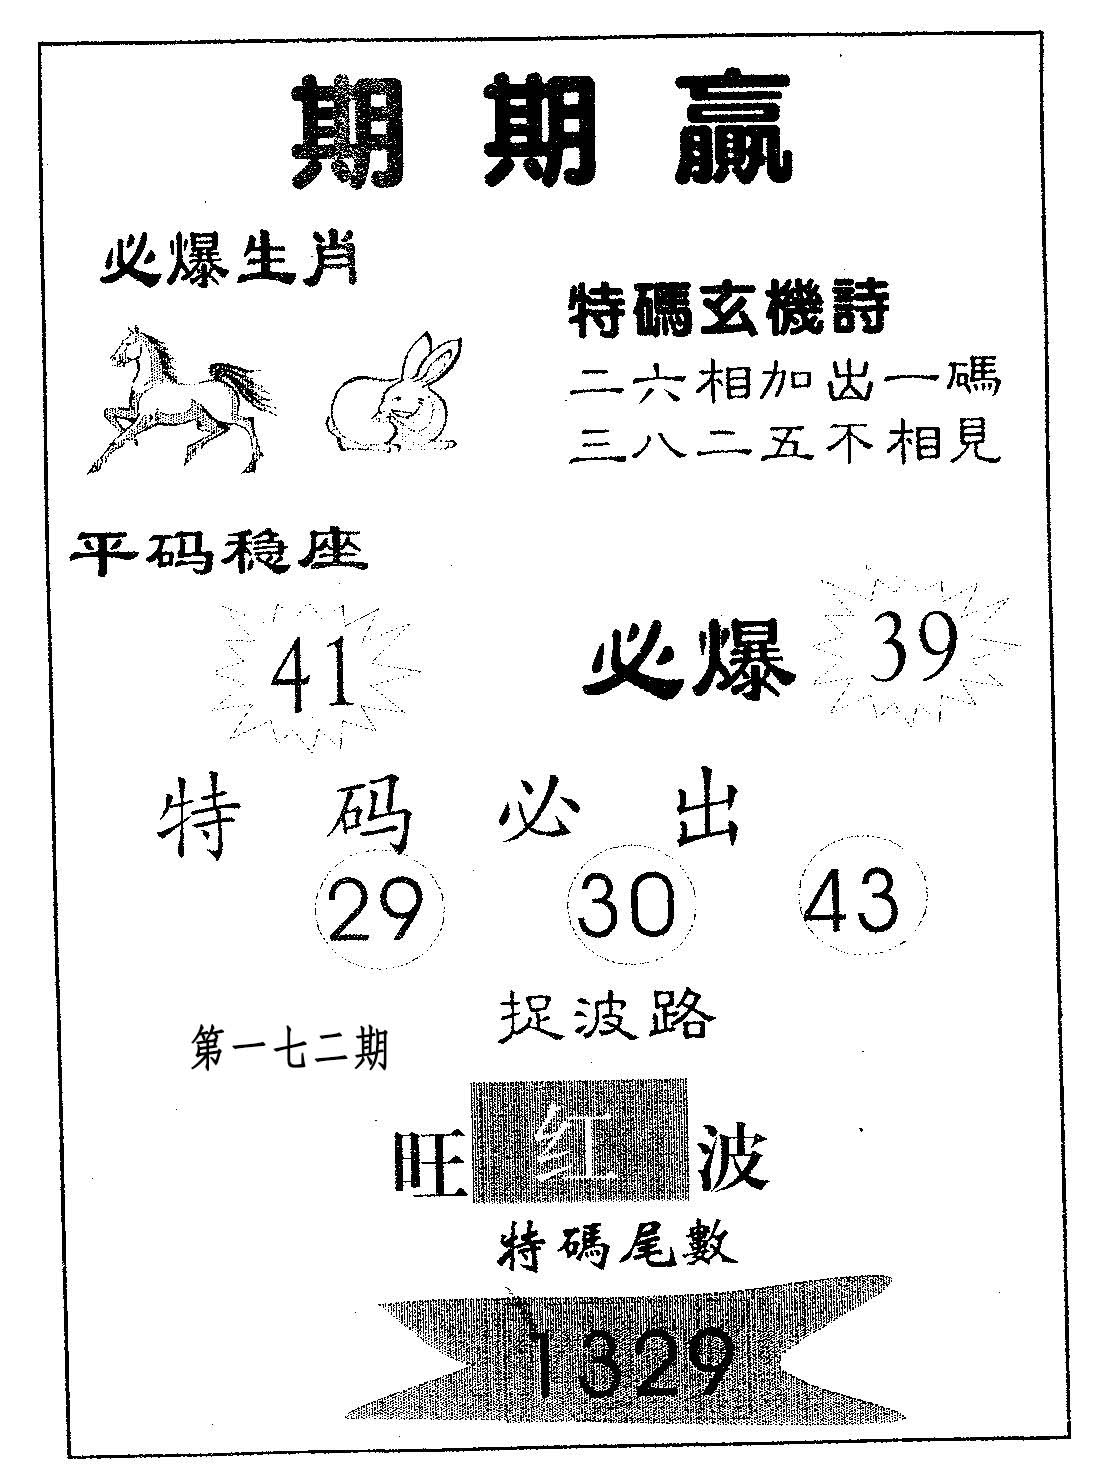 期期贏
必爆生肖
特碼玄機詩
二六相加出一碼
三八二五不相見
平码稳座
41
必爆 39
特码必出
29 30 43
捉波路
第一七二期
旺红波
特碼尾數
1329